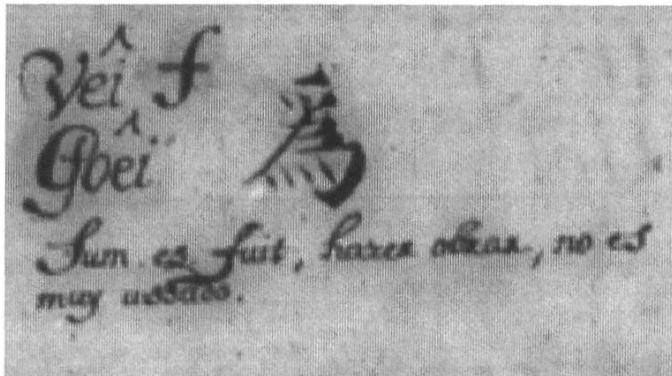 Vêi f
Goêi 為
Sum es fuit, hazer obrar, no es
muy ussado.